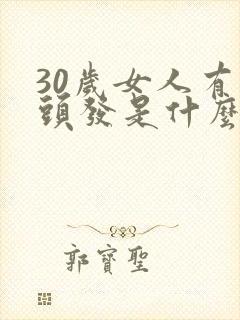 30歲女人有
頭發是什麽
郭寶聖